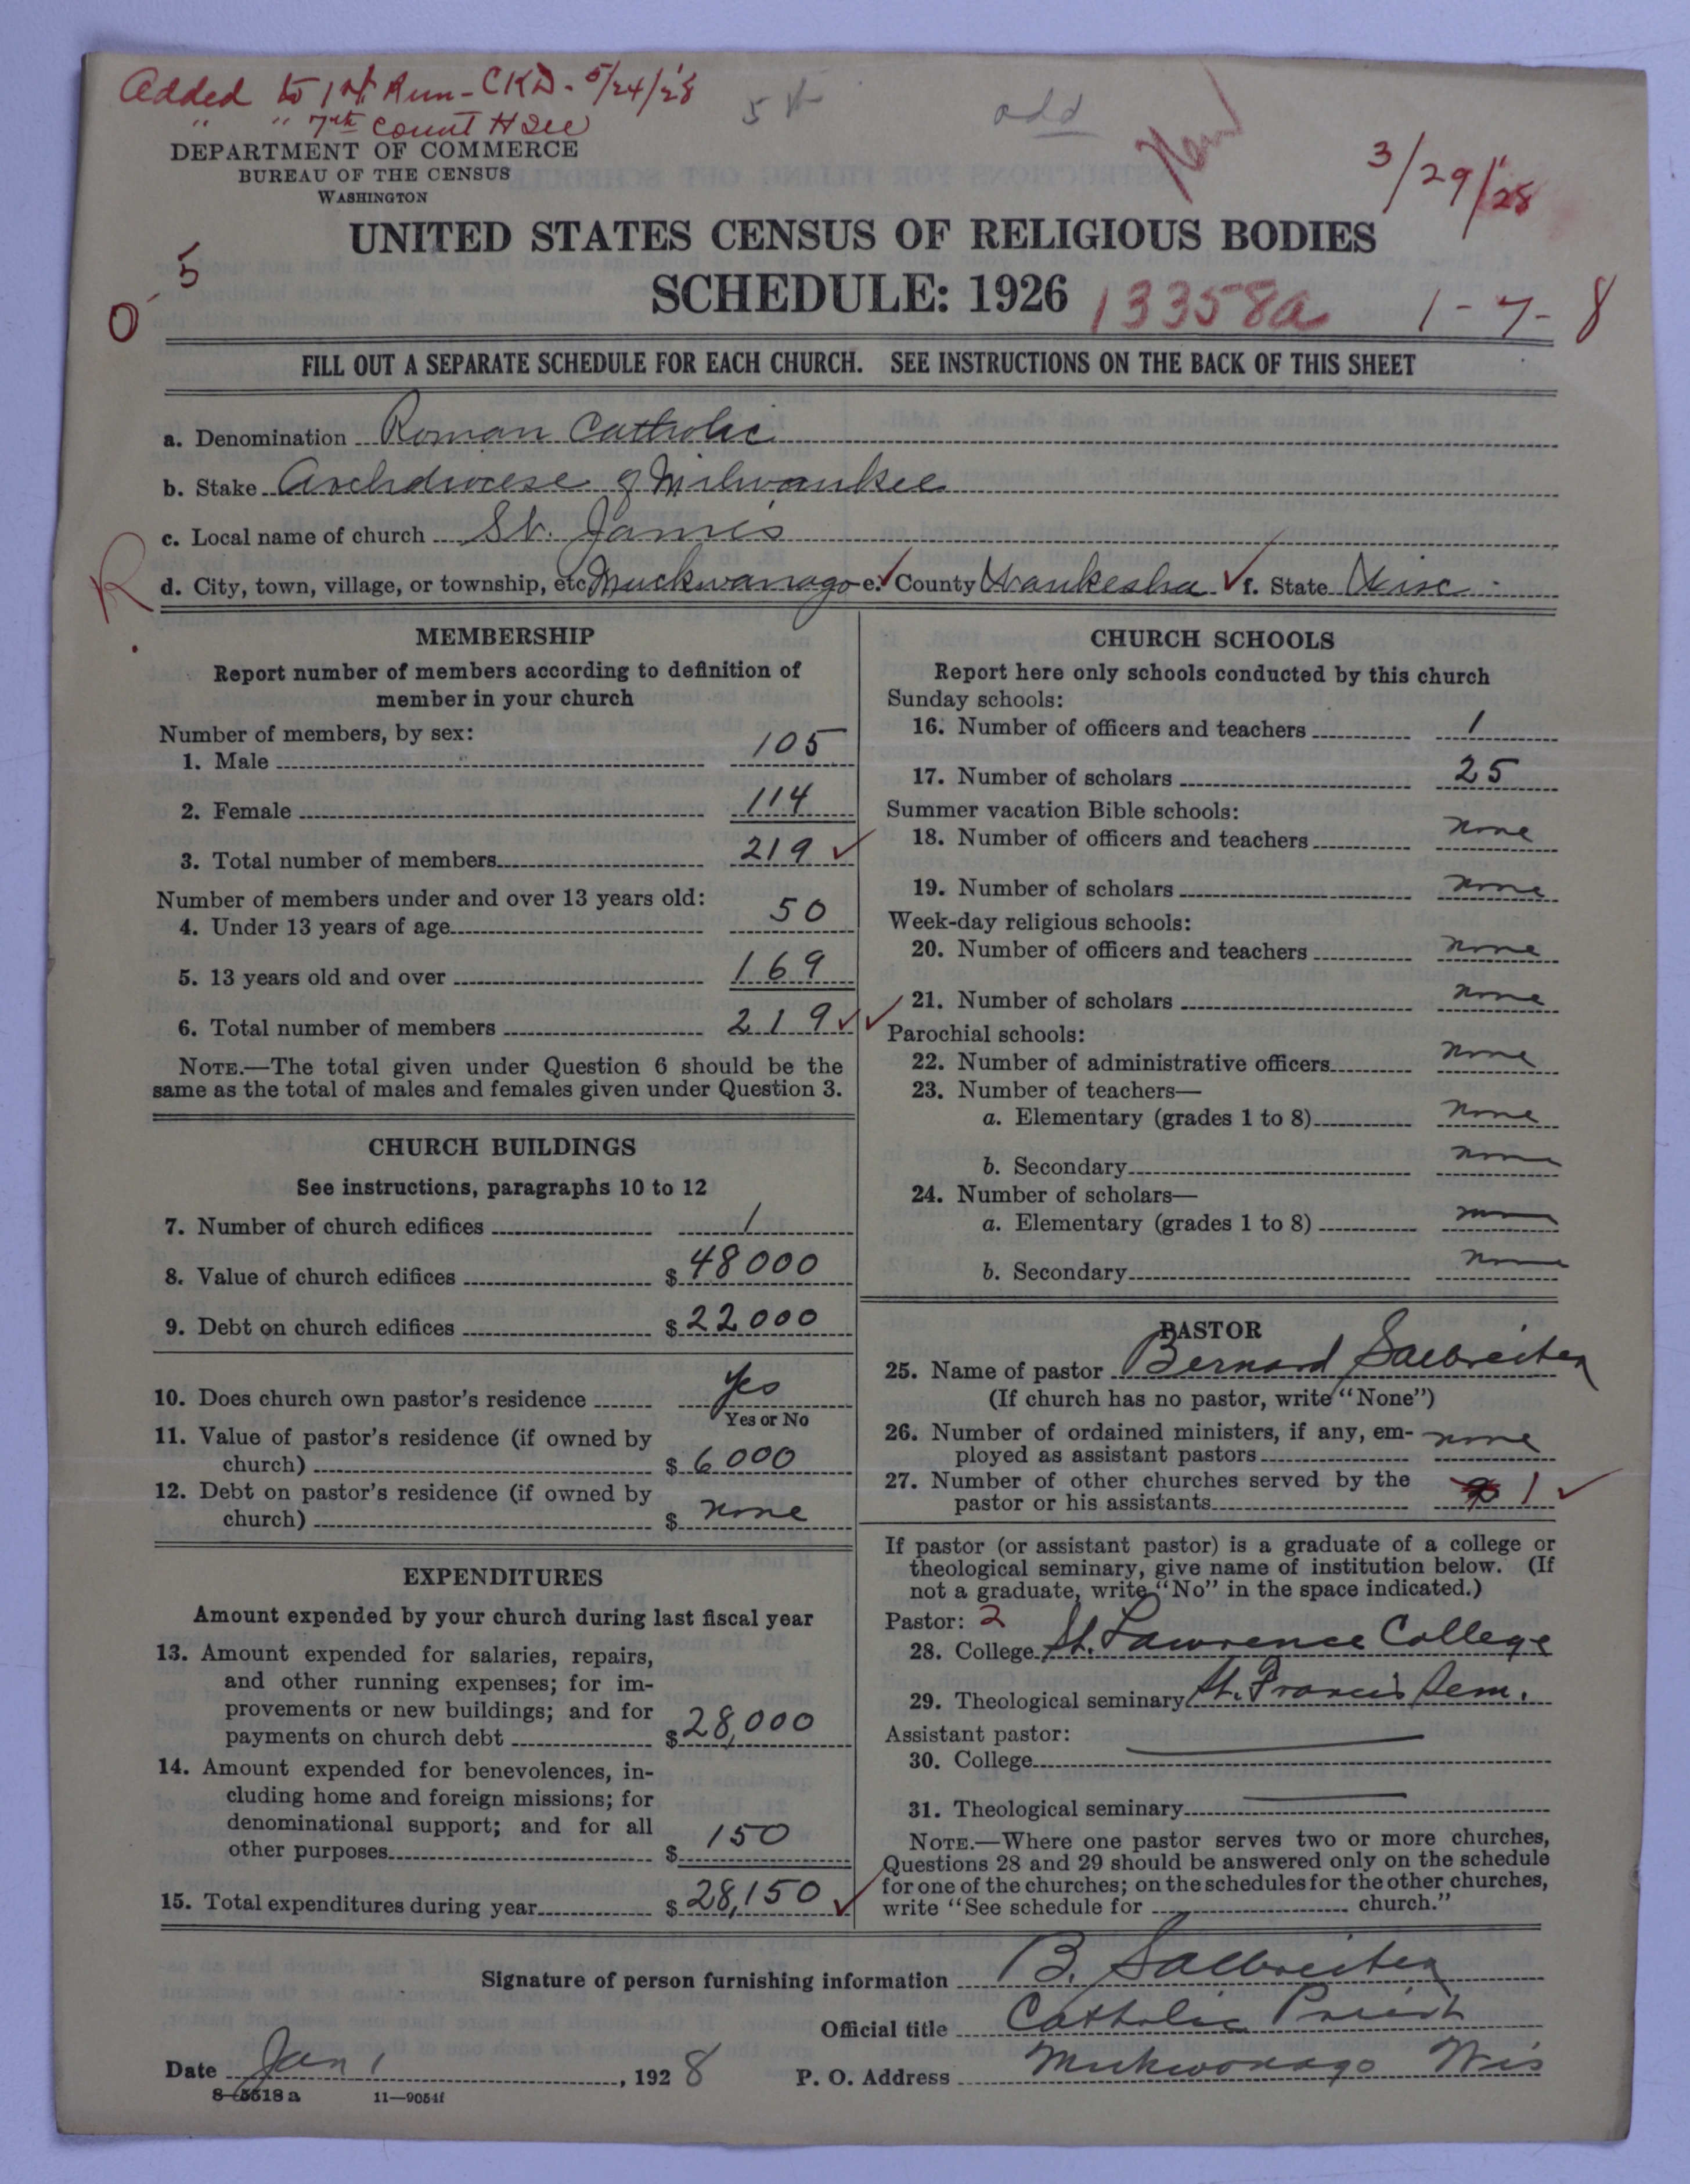 Added to 1st Run - CKD - 5/24/28
" " 7th Count
5th odd
New
3/29/28
DEPARTMENT OF COMMERCE
BUREAU OF THE CENSUS
WASHINGTON
UNITED STATES CENSUS OF RELIGIOUS BODIES
SCHEDULE: 1926
13358a
1-7-8
0 5
FILL OUT A SEPARATE SCHEDULE FOR EACH CHURCH. SEE INSTRUCTIONS ON THE BACK OF THIS SHEET
a. Denomination Roman Catholic
b. Stake Archdiocese of Milwaukee
c. Local name of church St. James
R
d. City, town, village, or township, etc Muckwanago e. County Waukesha f. State Wisc
MEMBERSHIP
Report number of members according to definition of
member in your church
Number of members, by sex:
1. Male 105
2. Female 114
3. Total number of members 219
Number of members under and over 13 years old:
4. Under 13 years of age 50
5. 13 years old and over 169
6. Total number of members 219
NOTE.—The total given under Question 6 should be the
same as the total of males and females given under Question 3.
CHURCH BUILDINGS
See instructions, paragraphs 10 to 12
7. Number of church edifices 1
8. Value of church edifices $ 48000
9. Debt on church edifices $ 22000
10. Does church own pastor's residence Yes
Yes or No
11. Value of pastor's residence (if owned by
church) $ 6000
12. Debt on pastor's residence (if owned by
church) $ none
EXPENDITURES
Amount expended by your church during last fiscal year
13. Amount expended for salaries, repairs,
and other running expenses; for im-
provements or new buildings; and for
payments on church debt $ 28,000
14. Amount expended for benevolences, in-
cluding home and foreign missions; for
denominational support; and for all
other purposes $ 150
15. Total expenditures during year $ 28,150
CHURCH SCHOOLS
Report here only schools conducted by this church
Sunday schools:
16. Number of officers and teachers 1
17. Number of scholars 25
Summer vacation Bible schools:
18. Number of officers and teachers none
19. Number of scholars none
Week-day religious schools:
20. Number of officers and teachers none
21. Number of scholars none
Parochial schools:
22. Number of administrative officers none
23. Number of teachers—
a. Elementary (grades 1 to 8) none
b. Secondary none
24. Number of scholars—
a. Elementary (grades 1 to 8) none
b. Secondary none
PASTOR
25. Name of pastor Bernard Salbreiter
(If church has no pastor, write "None")
26. Number of ordained ministers, if any, em-
ployed as assistant pastors none
27. Number of other churches served by the
pastor or his assistants 1
If pastor (or assistant pastor) is a graduate of a college or
theological seminary, give name of institution below. (If
not a graduate, write "No" in the space indicated.)
Pastor: 2
28. College St. Lawrence College
29. Theological seminary St. Francis Sem.
Assistant pastor:
30. College
31. Theological seminary
NOTE.—Where one pastor serves two or more churches,
Questions 28 and 29 should be answered only on the schedule
for one of the churches; on the schedules for the other churches,
write "See schedule for church."
Signature of person furnishing information B. Salbreiter
Official title Catholic Priest
Date Jan 1, 1928
P. O. Address Mukwonago Wis
8-5518a 11—9054f